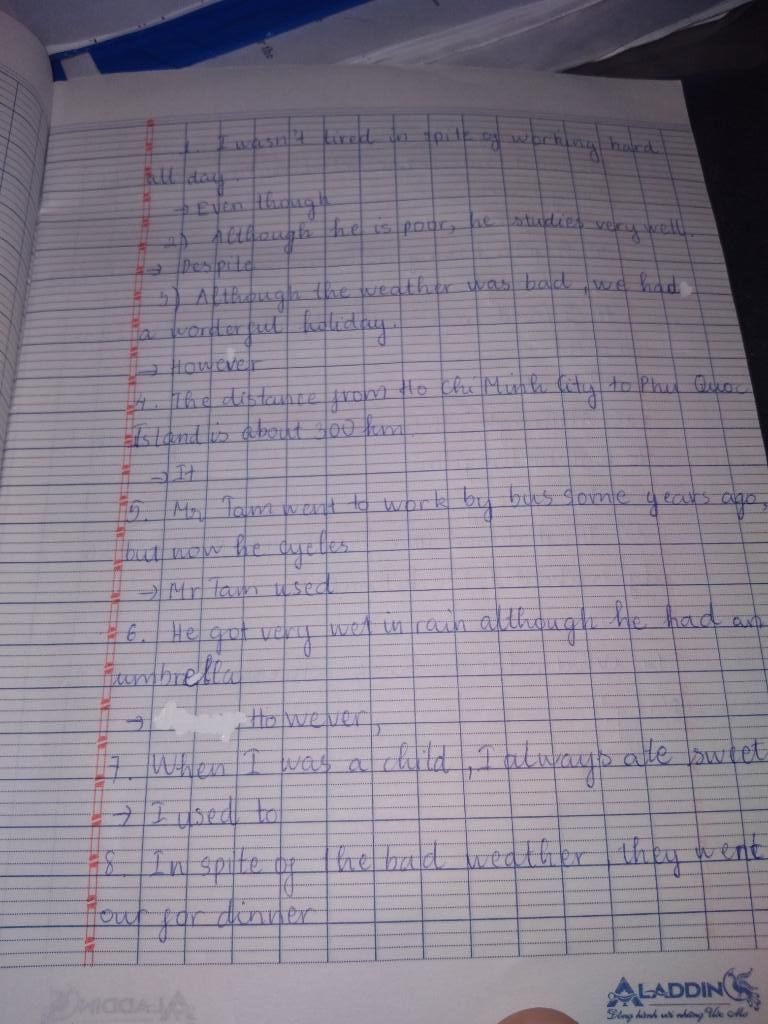 1. I wasn't tired in spite of working hard
all day.
→ Even though
2) Although he is poor, he studies very well.
→ Despite
3) Although the weather was bad, we had
a worderful holiday.
→ However
4. The distance from Ho Chi Minh City to Phu Quoc
Island is about 300 km
→ It
5. Mr Tam went to work by bus some years ago,
but now he cycles
→ Mr Tam used
6. He got very wet in rain although he had an
umbrella
→ However,
7. When I was a child, I always ate sweet
→ I used to
8. In spite of the bad weather, they went
our for dinner
ALADDIN
ALADDIN
Đồng hành với những Ước Mơ